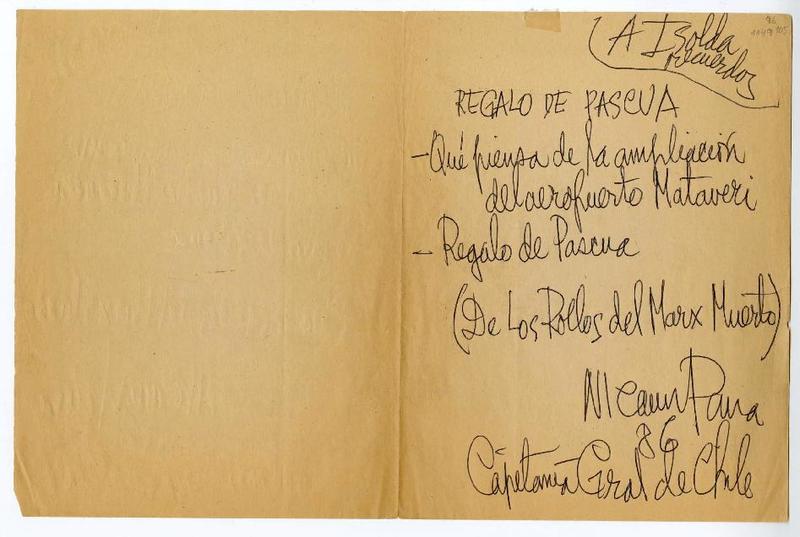 A Isolda
recuerdos
REGALO DE PASCUA
- Qué piensa de la ampliación
del aeropuerto Mataveri
- Regalo de Pascua
(De Los Rollos del Marx Muerto)
Nicanor Parra
86
Capitanía Gral de Chile